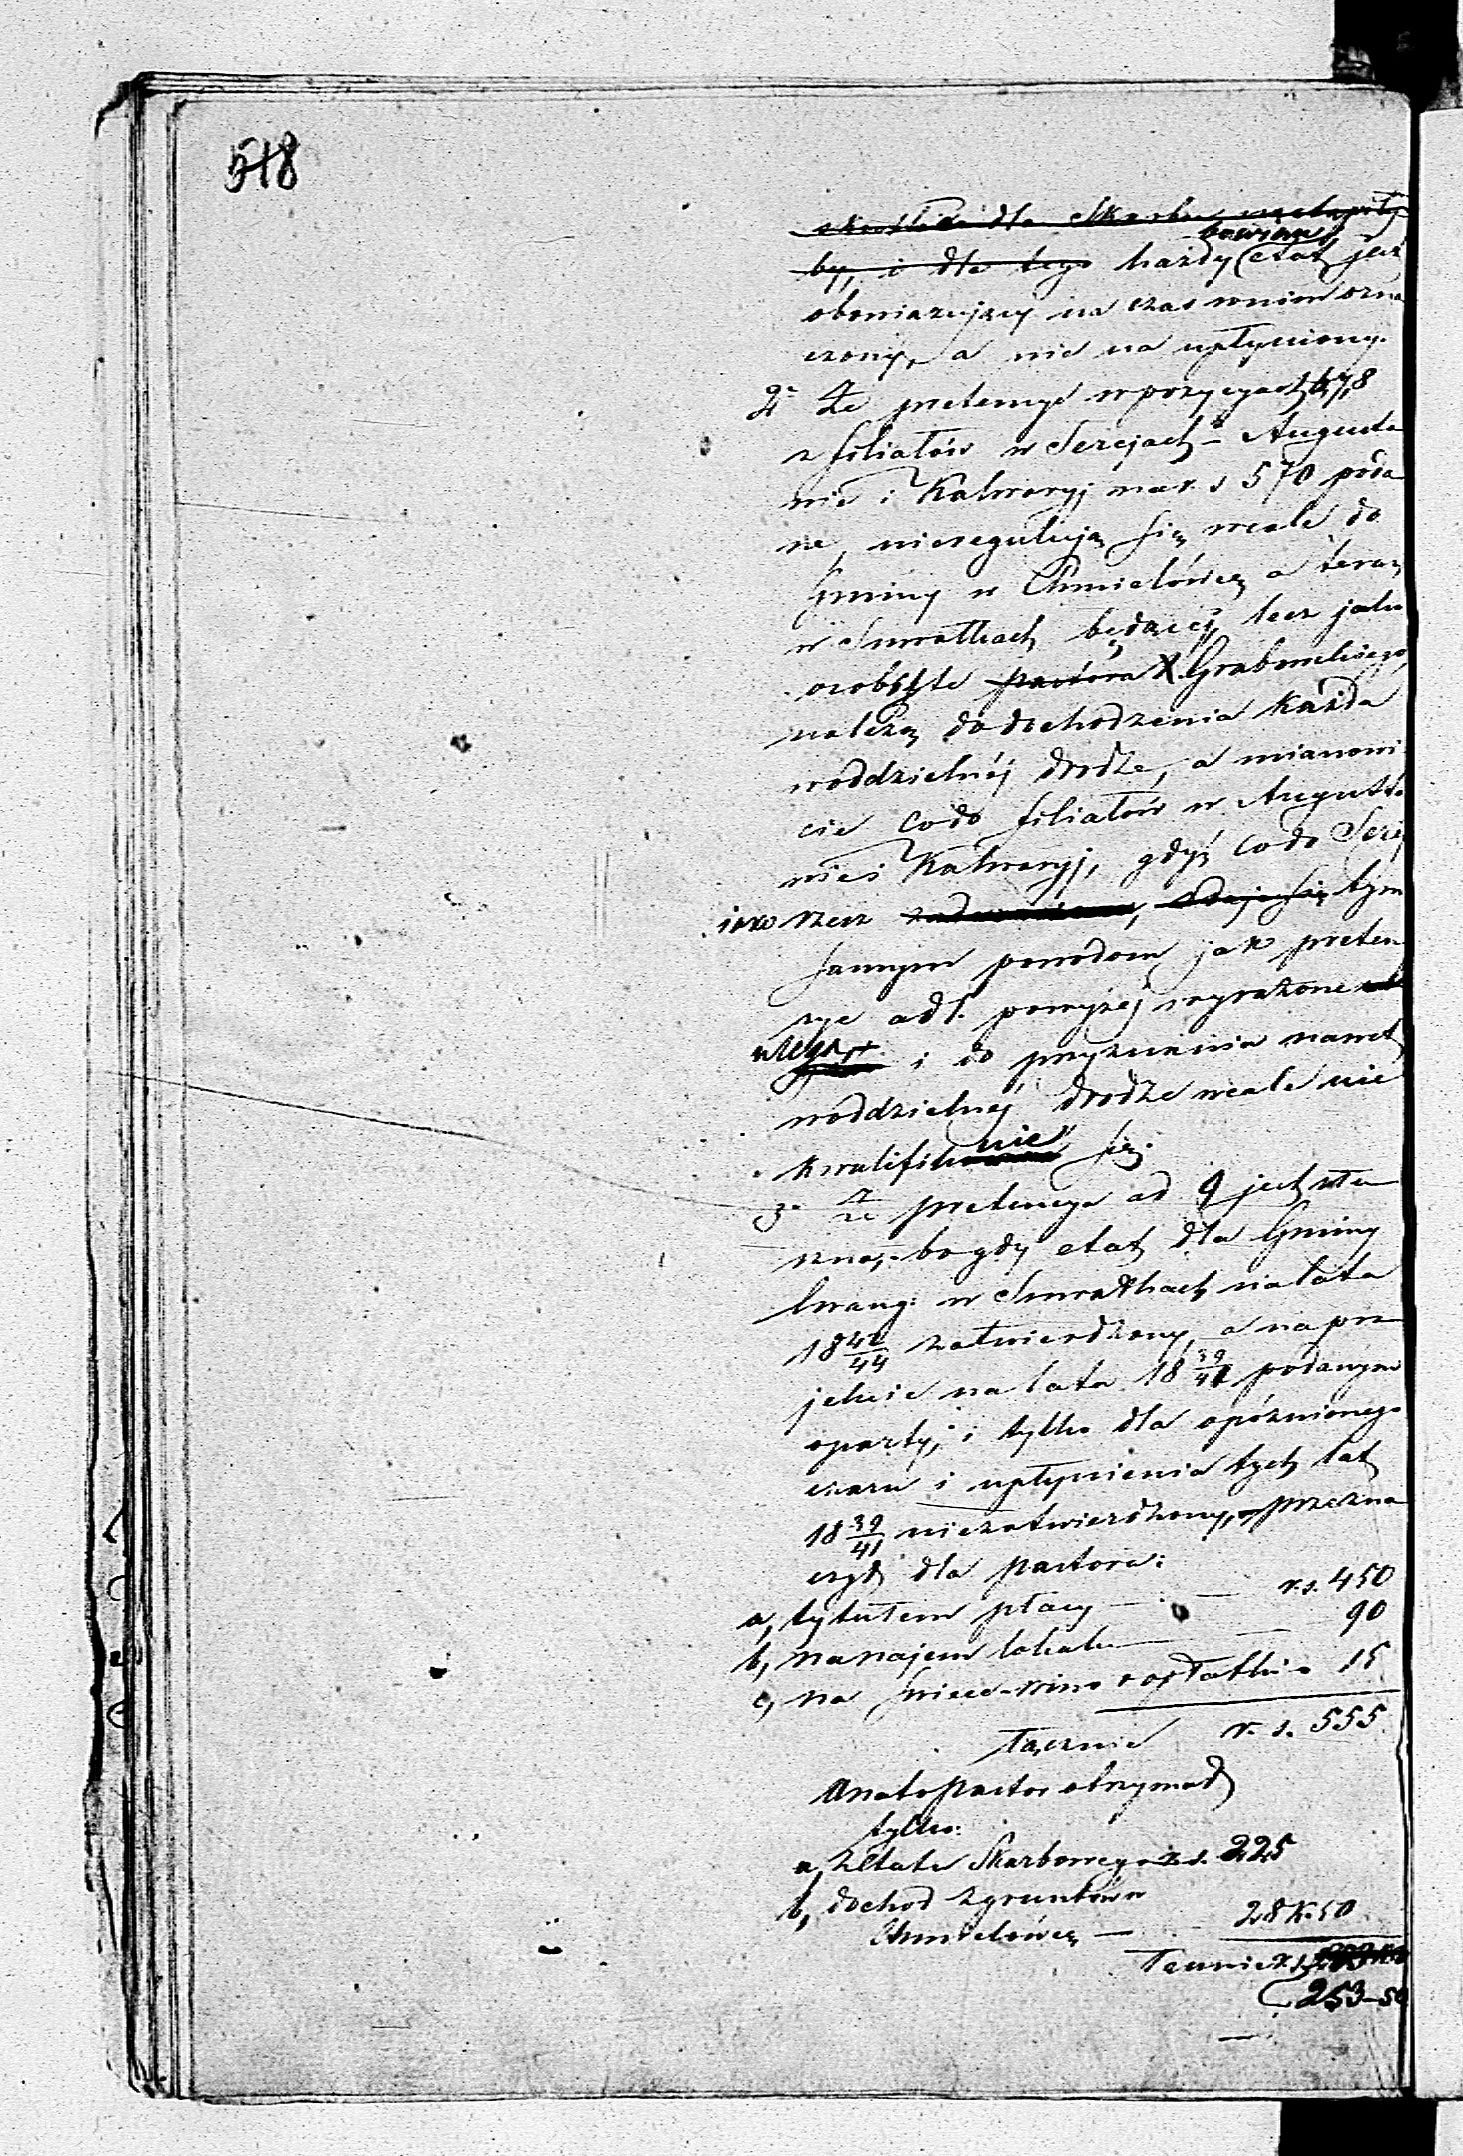 518
dla Skarbu nastąpiły
bowiem
by, i dla tego każdy etat jest
obowiązujący na czas w nim ozna
czony, a nie na upłyniony.
2° Że pretensye w pozycyach 6, 7, 8
z filiałów w Serejach - Augusto
wie i Kalwaryj na r. s 570 poda
ne, nieregulują się wcale do
Gminy w Chmielówcę a teraz
w Suwałkach będącej, lecz jako
osobiste pastora X. Grabowskiego
należą do dochodzenia każda
w oddzielnéj drodze, a mianowi
cie co do filiałów w Augusto
wie i Kalwaryj, gdyż co do Serej
rzecz zdaje się tym
samym powodom jak preten
sye ad 1. powyżéj wyrażone
ulega i do przyznania nawet
w oddzielnéj drodze wcale nie
kwalifikuie się.
3° Że pretensya ad 9 jest słu
szną, bo gdy etat dla Gminy
Ewang: w Suwałkach na lata
18 42/44 zatwierdzony, a na pro
jekcie na lata 18 39/41 podanym
oparty, i tylko dla opóźnionego
czasu i upłynienia tych lat
18 39/41 niezatwierdzony, przezna
czył dla pastora:
a, tytułem płacy — r. s. 450
b, na najem lokalu — 90
c, na świece - wino i opłatki 15
łącznie r. s. 555
A na to Pastor otrzymał
tylko:
a, z Etatu Skarbowego r. s. 225
b, dochod z gruntów w
Chmielówcę — 28 k. 50
Łącznie r. s.
253 - 50